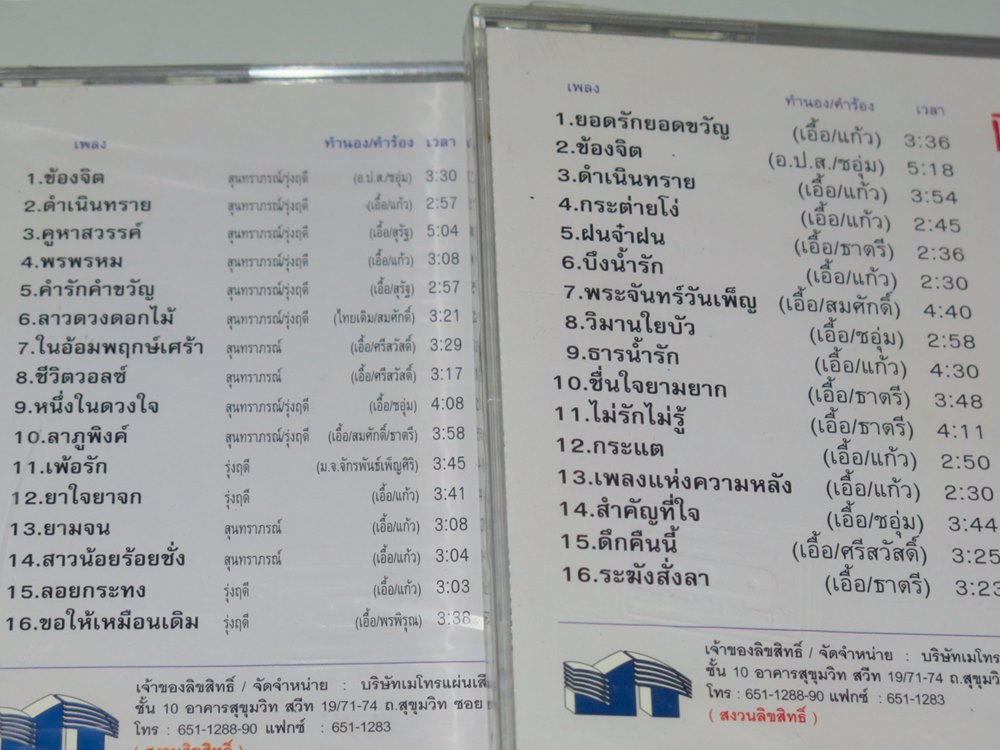 เพลง ทำนอง/คำร้อง เวลา
1.ข้องจิต สุนทราภรณ์/รุ่งฤดี (อ.ป.ส./ชอุ่ม) 3:30
2.ดำเนินทราย สุนทราภรณ์/รุ่งฤดี (เอื้อ/แก้ว) 2:57
3.คูหาสวรรค์ สุนทราภรณ์/รุ่งฤดี (เอื้อ/สุรัฐ) 5:04
4.พรพรหม สุนทราภรณ์/รุ่งฤดี (เอื้อ/แก้ว) 3:08
5.คำรักคำขวัญ สุนทราภรณ์/รุ่งฤดี (เอื้อ/สุรัฐ) 2:57
6.ลาวดวงดอกไม้ สุนทราภรณ์/รุ่งฤดี (ไทยเดิม/สมศักดิ์) 3:21
7.ในอ้อมพฤกษ์เศร้า สุนทราภรณ์ (เอื้อ/ศรีสวัสดิ์) 3:29
8.ชีวิตวอลซ์ สุนทราภรณ์ (เอื้อ/ศรีสวัสดิ์) 3:17
9.หนึ่งในดวงใจ สุนทราภรณ์/รุ่งฤดี (เอื้อ/ชอุ่ม) 4:08
10.ลาภูพิงค์ สุนทราภรณ์/รุ่งฤดี (เอื้อ/สมศักดิ์/ธาตรี) 3:58
11.เพ้อรัก รุ่งฤดี (ม.จ.จักรพันธ์เพ็ญศิริ) 3:45
12.ยาใจยาจก รุ่งฤดี (เอื้อ/แก้ว) 3:41
13.ยามจน สุนทราภรณ์ (เอื้อ/แก้ว) 3:08
14.สาวน้อยร้อยชั่ง สุนทราภรณ์ (เอื้อ/แก้ว) 3:04
15.ลอยกระทง รุ่งฤดี (เอื้อ/แก้ว) 3:03
16.ขอให้เหมือนเดิม รุ่งฤดี (เอื้อ/พรพิรุณ) 3:38
เจ้าของลิขสิทธิ์ / จัดจำหน่าย : บริษัทเมโทรแผ่นเสี
ชั้น 10 อาคารสุขุมวิท สวีท 19/71-74 ถ.สุขุมวิท ซอย
โทร : 651-1288-90 แฟกซ์ : 651-1283
( สงวนลิขสิทธิ์ )
เพลง ทำนอง/คำร้อง เวลา
1.ยอดรักยอดขวัญ (เอื้อ/แก้ว) 3:36
2.ข้องจิต (อ.ป.ส./ชอุ่ม) 5:18
3.ดำเนินทราย (เอื้อ/แก้ว) 3:54
4.กระต่ายโง่ (เอื้อ/แก้ว) 2:45
5.ฝนจ๋าฝน (เอื้อ/ธาตรี) 2:36
6.บึงน้ำรัก (เอื้อ/แก้ว) 2:30
7.พระจันทร์วันเพ็ญ (เอื้อ/สมศักดิ์) 4:40
8.วิมานใยบัว (เอื้อ/ชอุ่ม) 2:58
9.ธารน้ำรัก (เอื้อ/แก้ว) 4:30
10.ชื่นใจยามยาก (เอื้อ/ธาตรี) 3:48
11.ไม่รักไม่รู้ (เอื้อ/ธาตรี) 4:11
12.กระแต (เอื้อ/แก้ว) 2:50
13.เพลงแห่งความหลัง (เอื้อ/แก้ว) 2:30
14.สำคัญที่ใจ (เอื้อ/ชอุ่ม) 3:44
15.ดึกคืนนี้ (เอื้อ/ศรีสวัสดิ์) 3:25
16.ระฆังสั่งลา (เอื้อ/ธาตรี) 3:23
เจ้าของลิขสิทธิ์ / จัดจำหน่าย : บริษัทเมโทร
ชั้น 10 อาคารสุขุมวิท สวีท 19/71-74 ถ.สุขุมวิ
โทร : 651-1288-90 แฟกซ์ : 651-1283
( สงวนลิขสิทธิ์ )